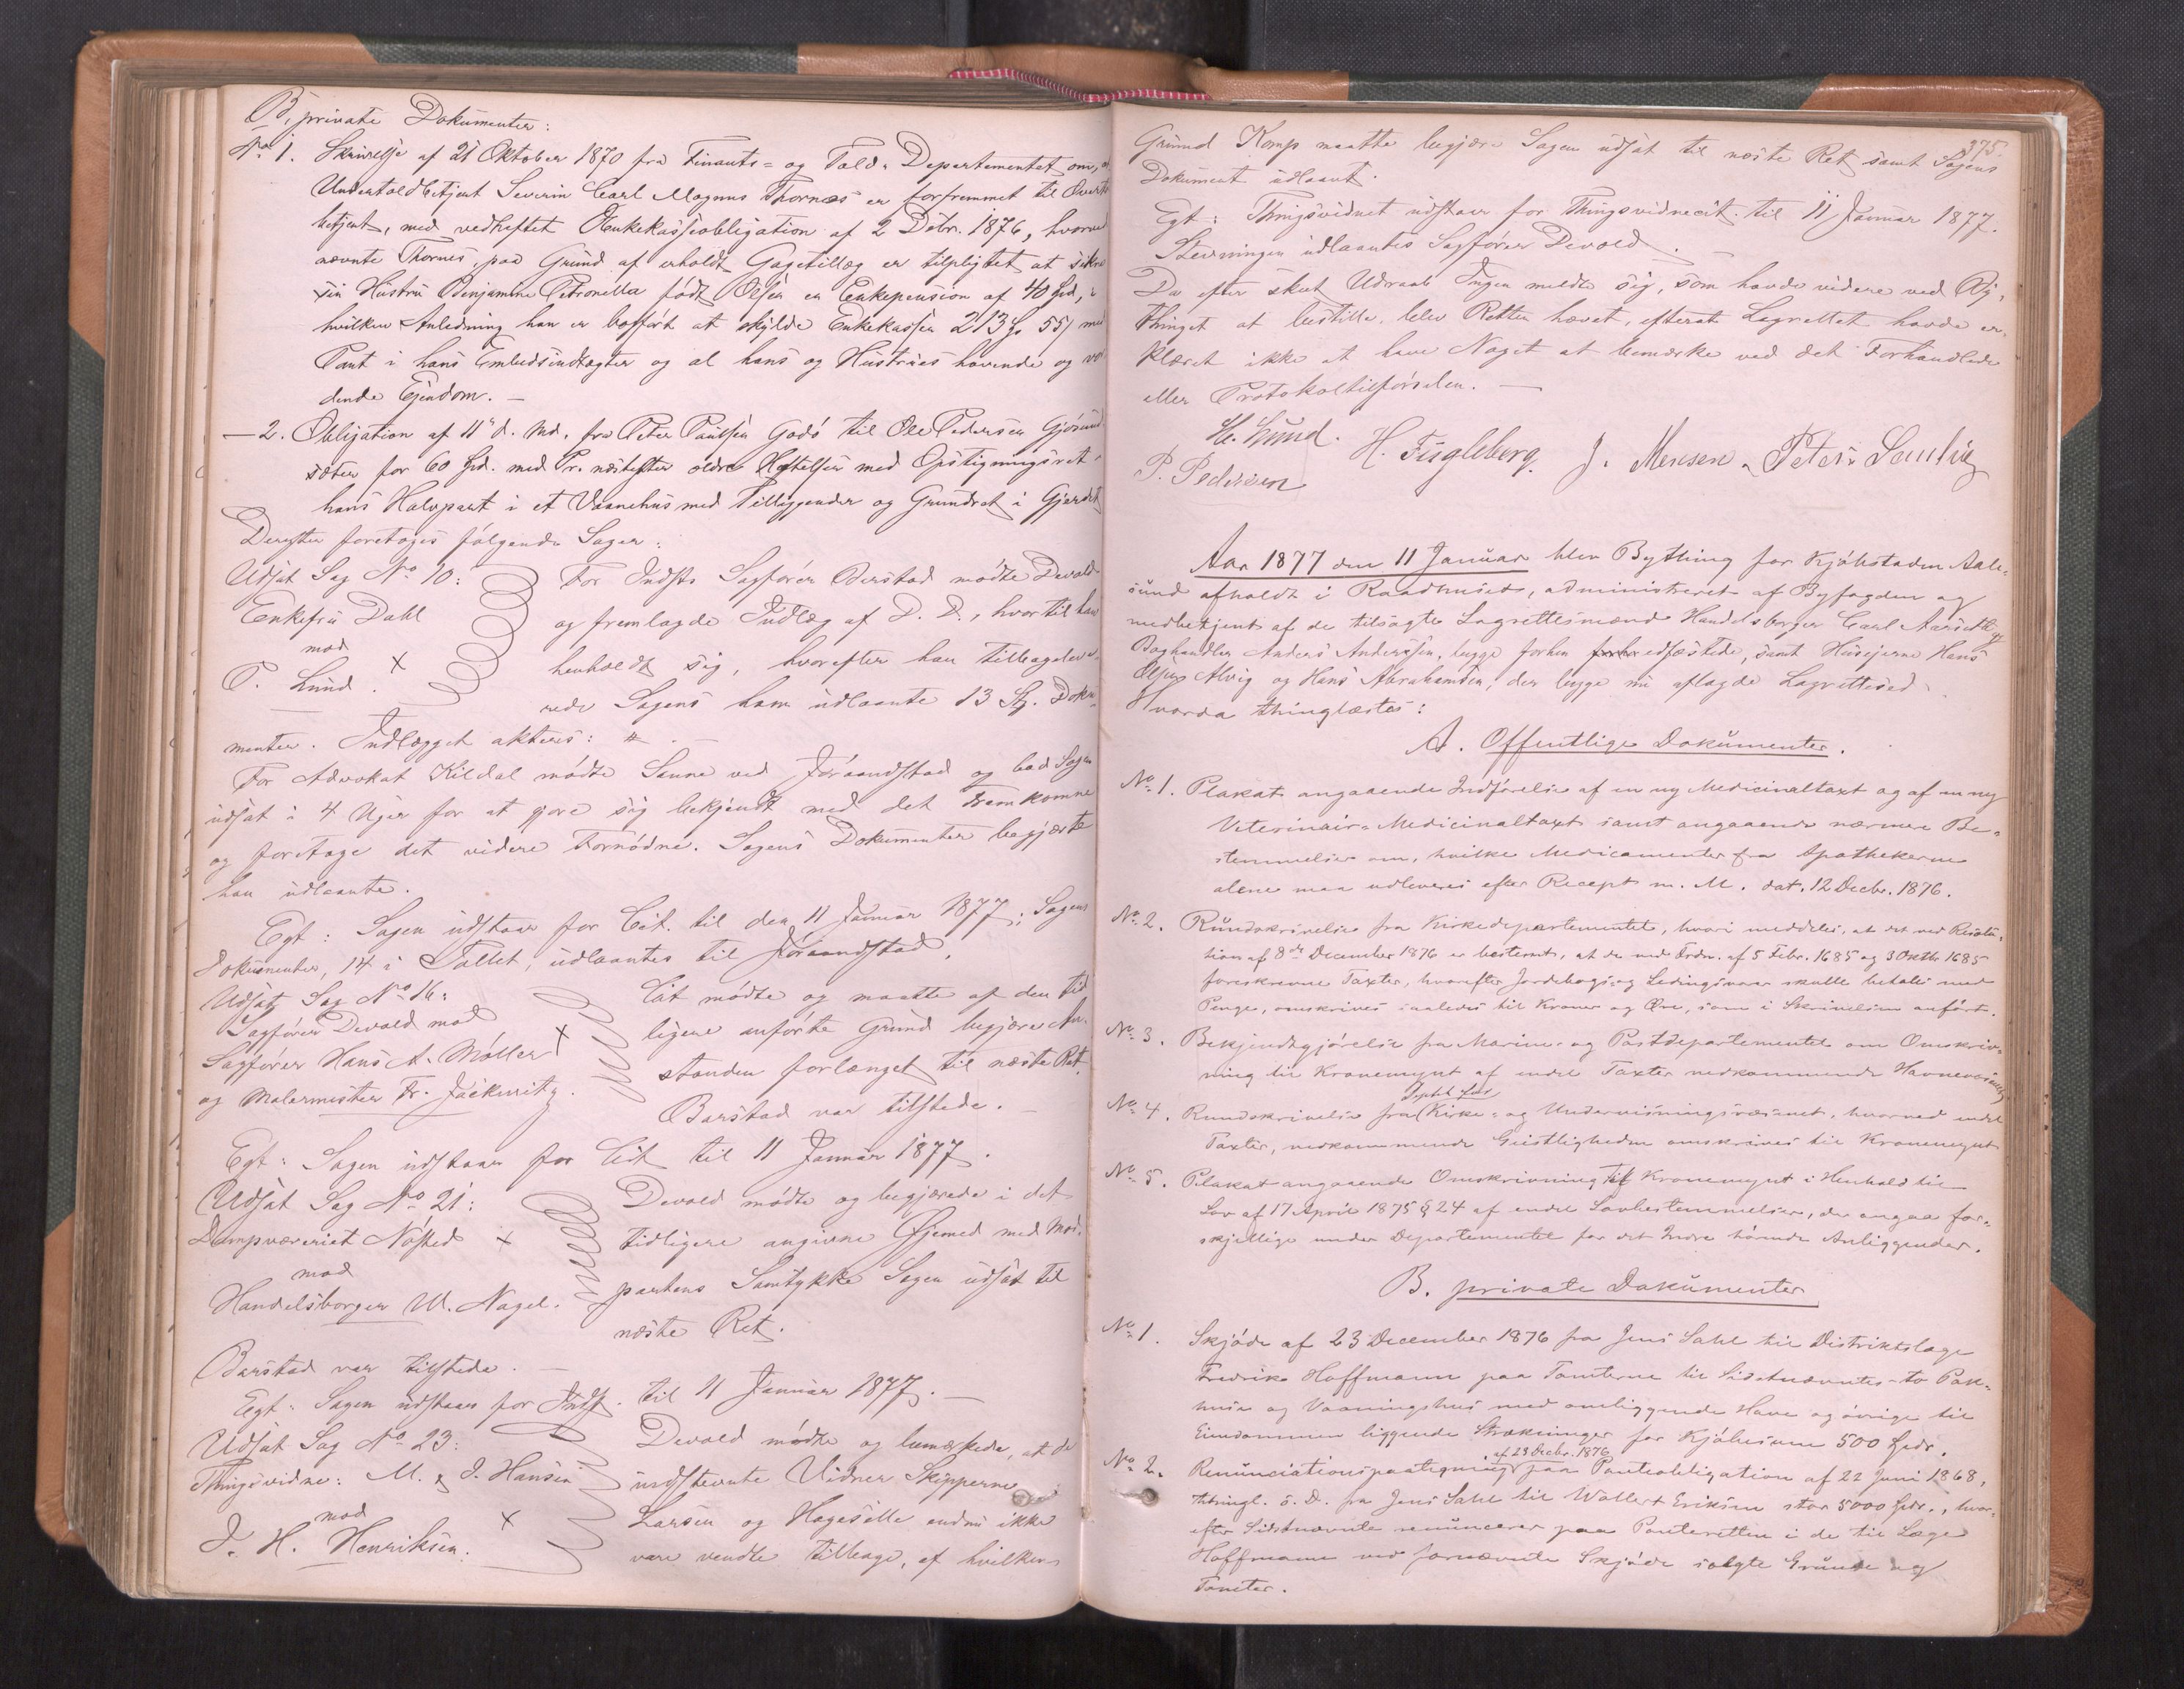 B, private Dokumenter:
No 1. Skrivelse af 21 Oktober 1870 fra Finants- og Told-Departementet om, at
Undertoldbetjent Severin Carl Magnus Thornæs er forfremmet til Overtold
betjent, med vedheftet Enkekasseobligation af 2 Debr. 1876, hvorved
nævnte Thornes, paa Grund af erholdt Gagetillæg er tilpligtet at sikre
sin Hustru Benjamine Petronella født Olsen en Enkepension af 40 Spd, i
hvilken Anledning han er bleven at skylde Enkekassen 213 55 med
Pant i hans Embedsindtægter og al hans og Hustrues havende og vor-
dende Ejendom. —
— 2. Obligation af 11te d. Md. fra Peter Paulsen Godø til Ole Pedersen Gjøsund
sæter for 60 Spd. med Pr. næstefter ældre Heftelser med Opstigningsret i
hans Halvpart i et Vaanehus med Tilliggender og Grundret i Gjerdet
Derefter foretoges følgende Sager:
Udsat Sag No 10:
Enkefru Dahl
mod
P. Lund. ×
For Indst. Sagfører Barstad mødte Devold
og fremlagde Indlæg af D. D., hvortil han
henholdt sig, hvorefter han tilbagelev-
rede Sagens ham udlaante 13 St. Doku-
menter. Indlægget akteres: #. —
For Advokat Kildal mødte Sanne ved Joraandstad og bad Sagen
udsat i 4 Uger for at gjøre sig bekjendt med det Fremkomne
og foretage det videre Fornødne. Sagens Dokumenter begjærte
han udlaante.
Egt: Sagen udstaar for Cit. til den 11 Januar 1877; Sagens
Dokumenter, 14 i Tallet, udlaantes til Joraandstad.
Udsat Sag No 16:
Sagfører Devold mod
Sagfører Hans A. Møller ×
og Malermester Fr. Jackwitz.
Cit mødte og maatte af den tid
ligere anførte Grund begjære An-
standen forlænget til næste Ret.
Barstad var tilstede. —
Egt: Sagen udstaar for Cit til 11 Januar 1877.
Udsat Sag No 21:
Dampvæveriet Nøsted ×
mod
Handelsborger W. Nagel.
Devold mødte og begjærede i det
tidligere angivne Øjemed med Mod-
partens Samtykke Sagen udsat til
næste Ret.
Barstad var tilstede. —
Egt: Sagen udstaar for Indst. til 11 Januar 1877. —
Udsat Sag No 23:
Thingsvidne: M. & J. Hansen
mod ×
J. H. Henriksen.
Devold mødte og bemærkede, at de
indstevnte Vidner Skipperne
Larsen og Hagesælle endnu ikke
vare vendte tilbage, af hvilken
375.
Grund Komp maatte begjære Sagen udsat til næste Ret samt Sagens
Dokument udlaant.
Egt: Thingsvidnet udstaar for Thingsvidnecit. til 11 Januar 1877.
Stevningen udlaantes Sagfører Devold.
Da efter skeet Udraab Ingen meldte sig, som havde videre ved By-
thinget at bestille, blev Retten hævet, efterat Lagrettet havde er-
klæret ikke at have Noget at bemærke ved det Forhandlede
eller Protokoltilførselen. —
Lund. H. Fugleberg. J. Mensen. Peter
P. Pedersen
Aar 1877 den 11 Januar blev Bything for Kjøbstaden Aale-
sund afholdt i Raadhuset, administreret af Byfogden og
medbetjent af de tilsagte Lagrettesmænd Handelsborger Carl Aarseth og
Boghandler Anders Anderssen, begge forhen edfæstede, samt Husejerne Hans
Olsen Alvig og Hans Abrahamsen, der begge nu aflagde Lagrettesed.
Hvorda thinglæstes:
A. Offentlige Dokumenter.
No 1. Plakat angaaende Indførelse af en ny Medicinaltaxt og af en ny
Veterinair-Medicinaltaxt samt angaaende nærmere Be-
stemmelser om, hvilke Medicamenter fra Apothekerne
alene maa udleveres efter Recept m. M. dat. 12 Decbr. 1876.
No 2. Rundskrivelse fra Kirkedepartementet, hvori meddeles, at det ved Resolu-
tion af 8de December 1876 er bestemt, at de ved Frdn. af 5 Febr. 1685 og 3 Oktbr 1685
foreskrevne Taxter, hvorefter Jordebogs og Ledingsvarer skulle betales med
Penge, omskrives saaledes til Kroner og Øre, som i Skrivelsen anført.
No 3. Bekjendtgjørelse fra Marine- og Postdepartementet om Omskriv-
ning til Kronemynt af endel Taxter vedkommende Havnevæsenet
No 4. Rundskrivelse fra Deptet for Kirke- og Undervisningsvæsenet, hvorved endel
Taxter, vedkommende Geistligheden omskrives til Kronemynt
No 5. Plakat angaaende Omskrivning til Kronemynt i Henhold til
Lov af 17 April 1875 § 24 af endel Lovbestemmelser, der angaa for-
skjellige under Departementet for det Indre hørende Anliggender.
B. private Dokumenter
No 1. Skjøde af 23 December 1876 fra Jens Dahl til Distriktslæge
Fredrik Hoffmann paa Tomterne til Sidstnævntes to Pak-
huse og Vaaningshus med omliggende Have og øvrige til
Eiendommen liggende Strækninger for Kjøbesum 500 Spdr.
No 2. Renunciationspaategning af 23 Decbr. 1876 paa Panteobligation af 22 Juni 1868,
thingl. s. D. fra Jens Dahl til Wollert Eriksen stor 5000 Spdr., hvor-
efter Sidstnævnte renuncerer paa Panteretten i de til Læge
Hoffmann ved fornævnte Skjøde solgte Grunde og
Tomter.